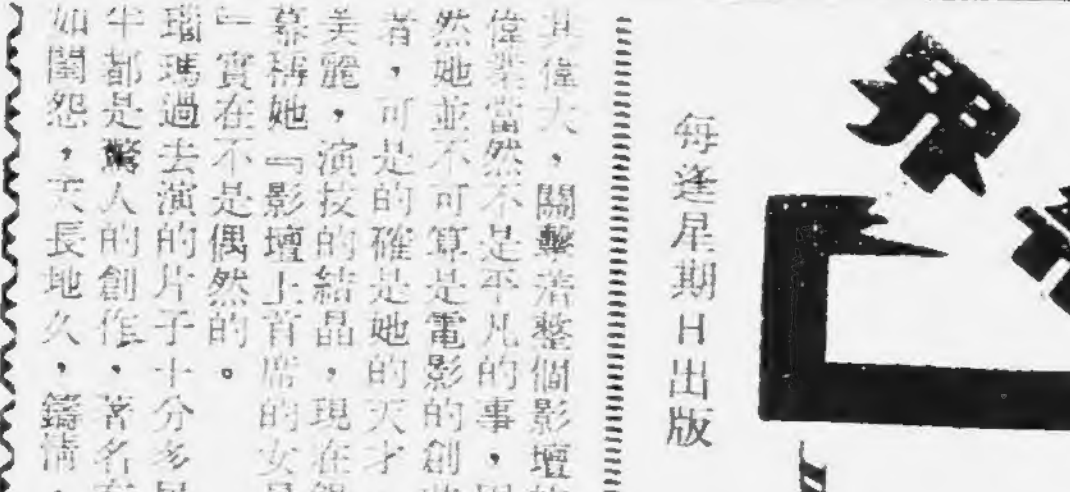 每逢星期日出版
其偉大，關繫着整個影壇
偉業當然不是平凡的事，
然她並不可算是電影的創
者，可是的確是她的天才
美麗，演技的結晶，現在
幕稱她『影壇上首席的女
』實在不是偶然的。
瑙瑪過去演的片子十分多
牛都是驚人的創作，著名
如閨怨，天長地久，鑄情，